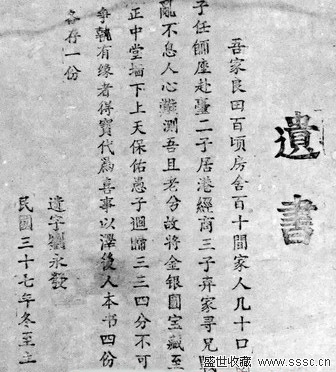 遺書
吾家良田百頃房舍百十間家人几十口
子任師座赴臺二子居港經商三子弃家寻兄
亂不息人心難測吾且老兮故將金银圓宝藏至
正中堂墙下上天保佑愚子迴歸三三四分不可
爭執有缘者得寶代爲喜事以澤後人本书四份
各存一份
字劉永發
民國三十七年冬至立
盛世收藏 www.sssc.cn